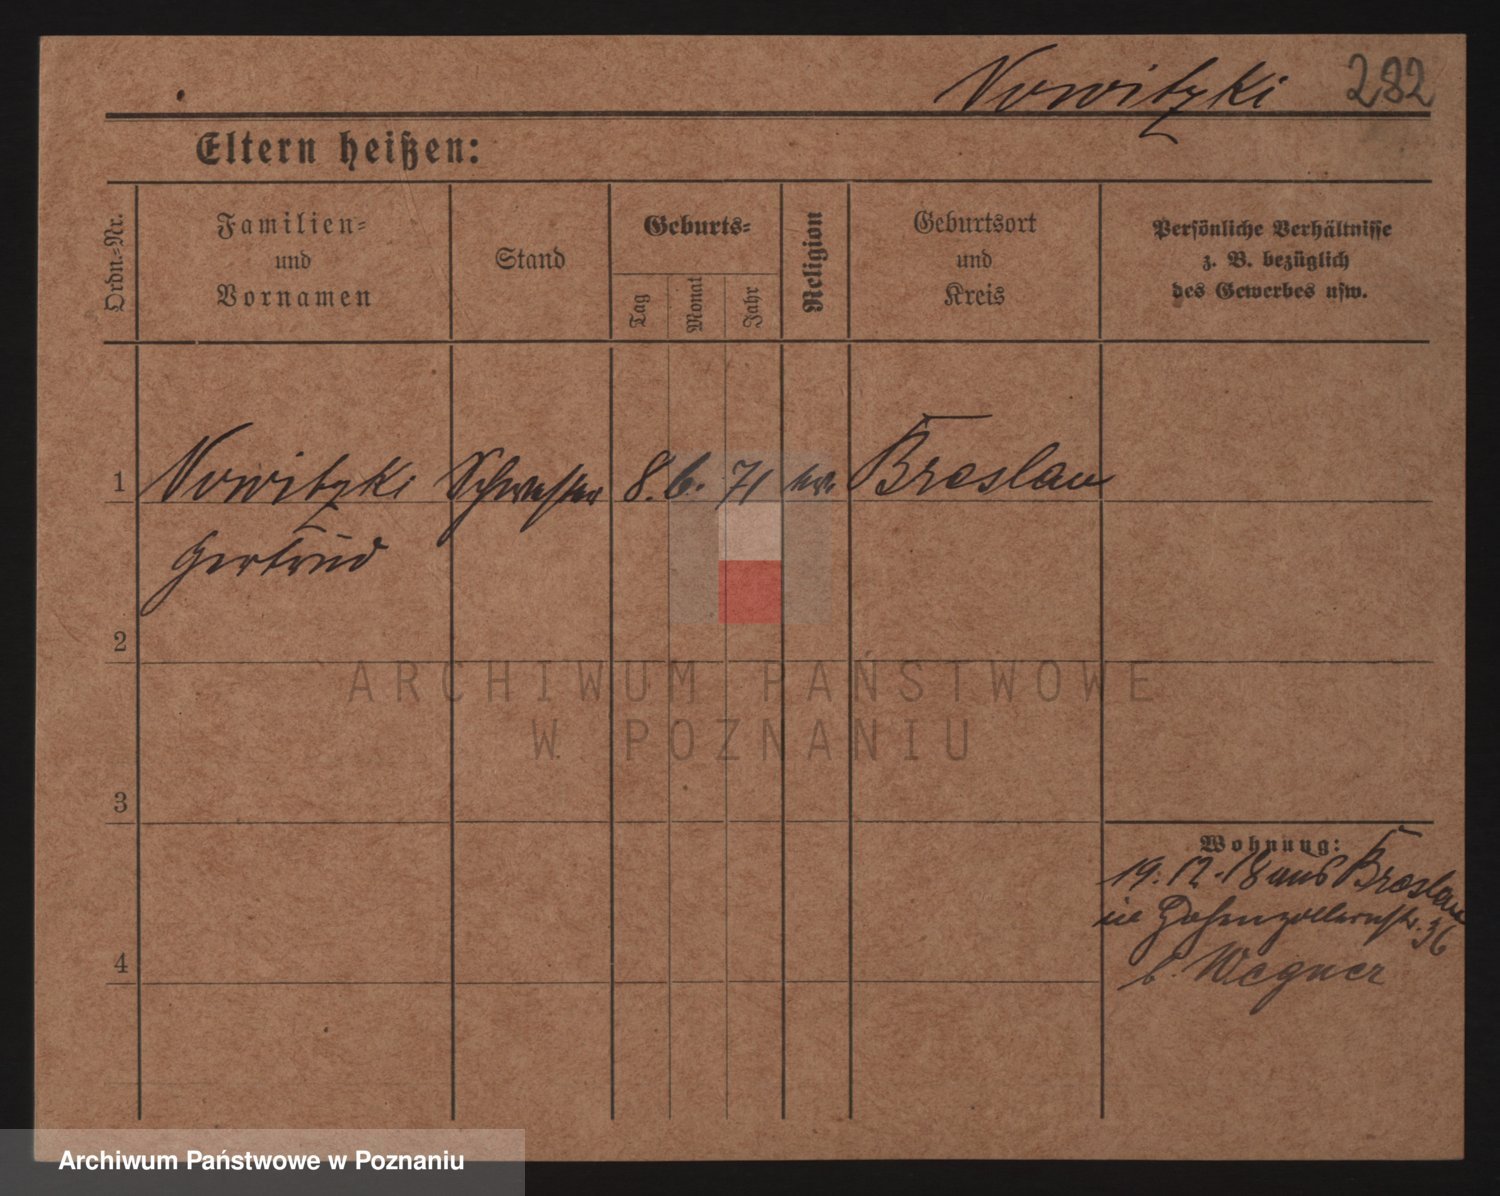 Nowitzki 282
Eltern heißen:
Ordn.-Nr.
Familien-
und
Vornamen
Stand
Geburts-
Tag
Monat
Jahr
Religion
Geburtsort
und
Kreis
Persönliche Verhältnisse
z. B. bezüglich
des Gewerbes usw.
1 Nowitzki Schwester 8. 6. 71 ev. Breslau
Gertrud
2
3
4
Wohnung:
19.12.18 aus Breslau
in Hohenzollernstr. 36
b. Wegner
ARCHIWUM PAŃSTWOWE
W POZNANIU
Archiwum Państwowe w Poznaniu